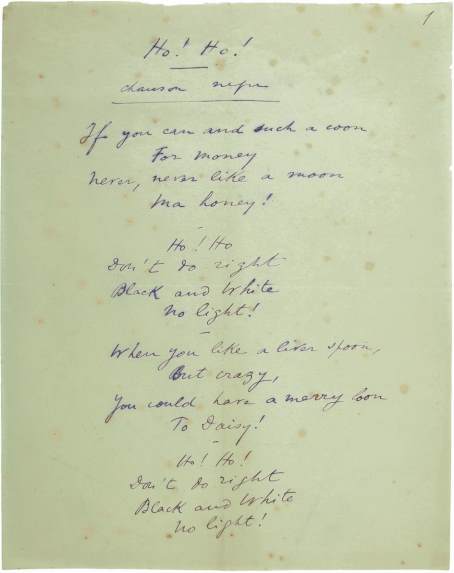 1
Ho! Ho!
chanson nègre
If you can and such a coon
For money
Never, never like a moon
Ma honey!
Ho! Ho
Don't do right
Black and White
No light!
When you like a liver spoon,
But crazy,
You could have a merry loon
To Daisy!
Ho! Ho!
Don't do right
Black and White
No light!